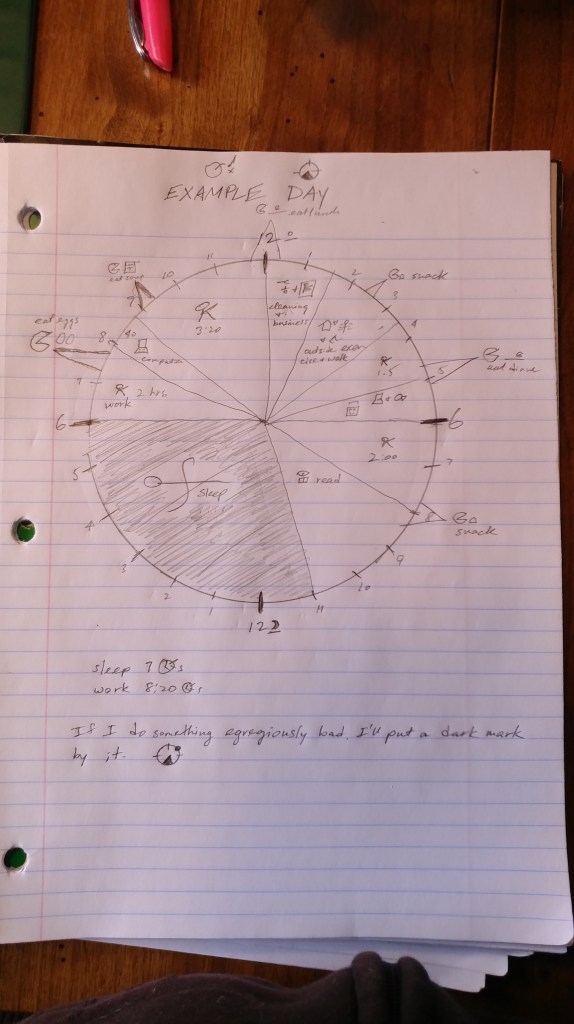 EXAMPLE DAY
eat lunch
12
11
1
10
2
snack
9
3
cleaning
+
business
3:20
8
40
4
outside exer
cise + walk
eat eggs
computer
1.5
5
7
2 hrs
work
6
6
5
2:00
7
sleep
read
4
8
snack
3
9
2
10
1
11
12
sleep 7 s
work 8:20
If I do something egregiously bad, I'll put a dark mark
by it.